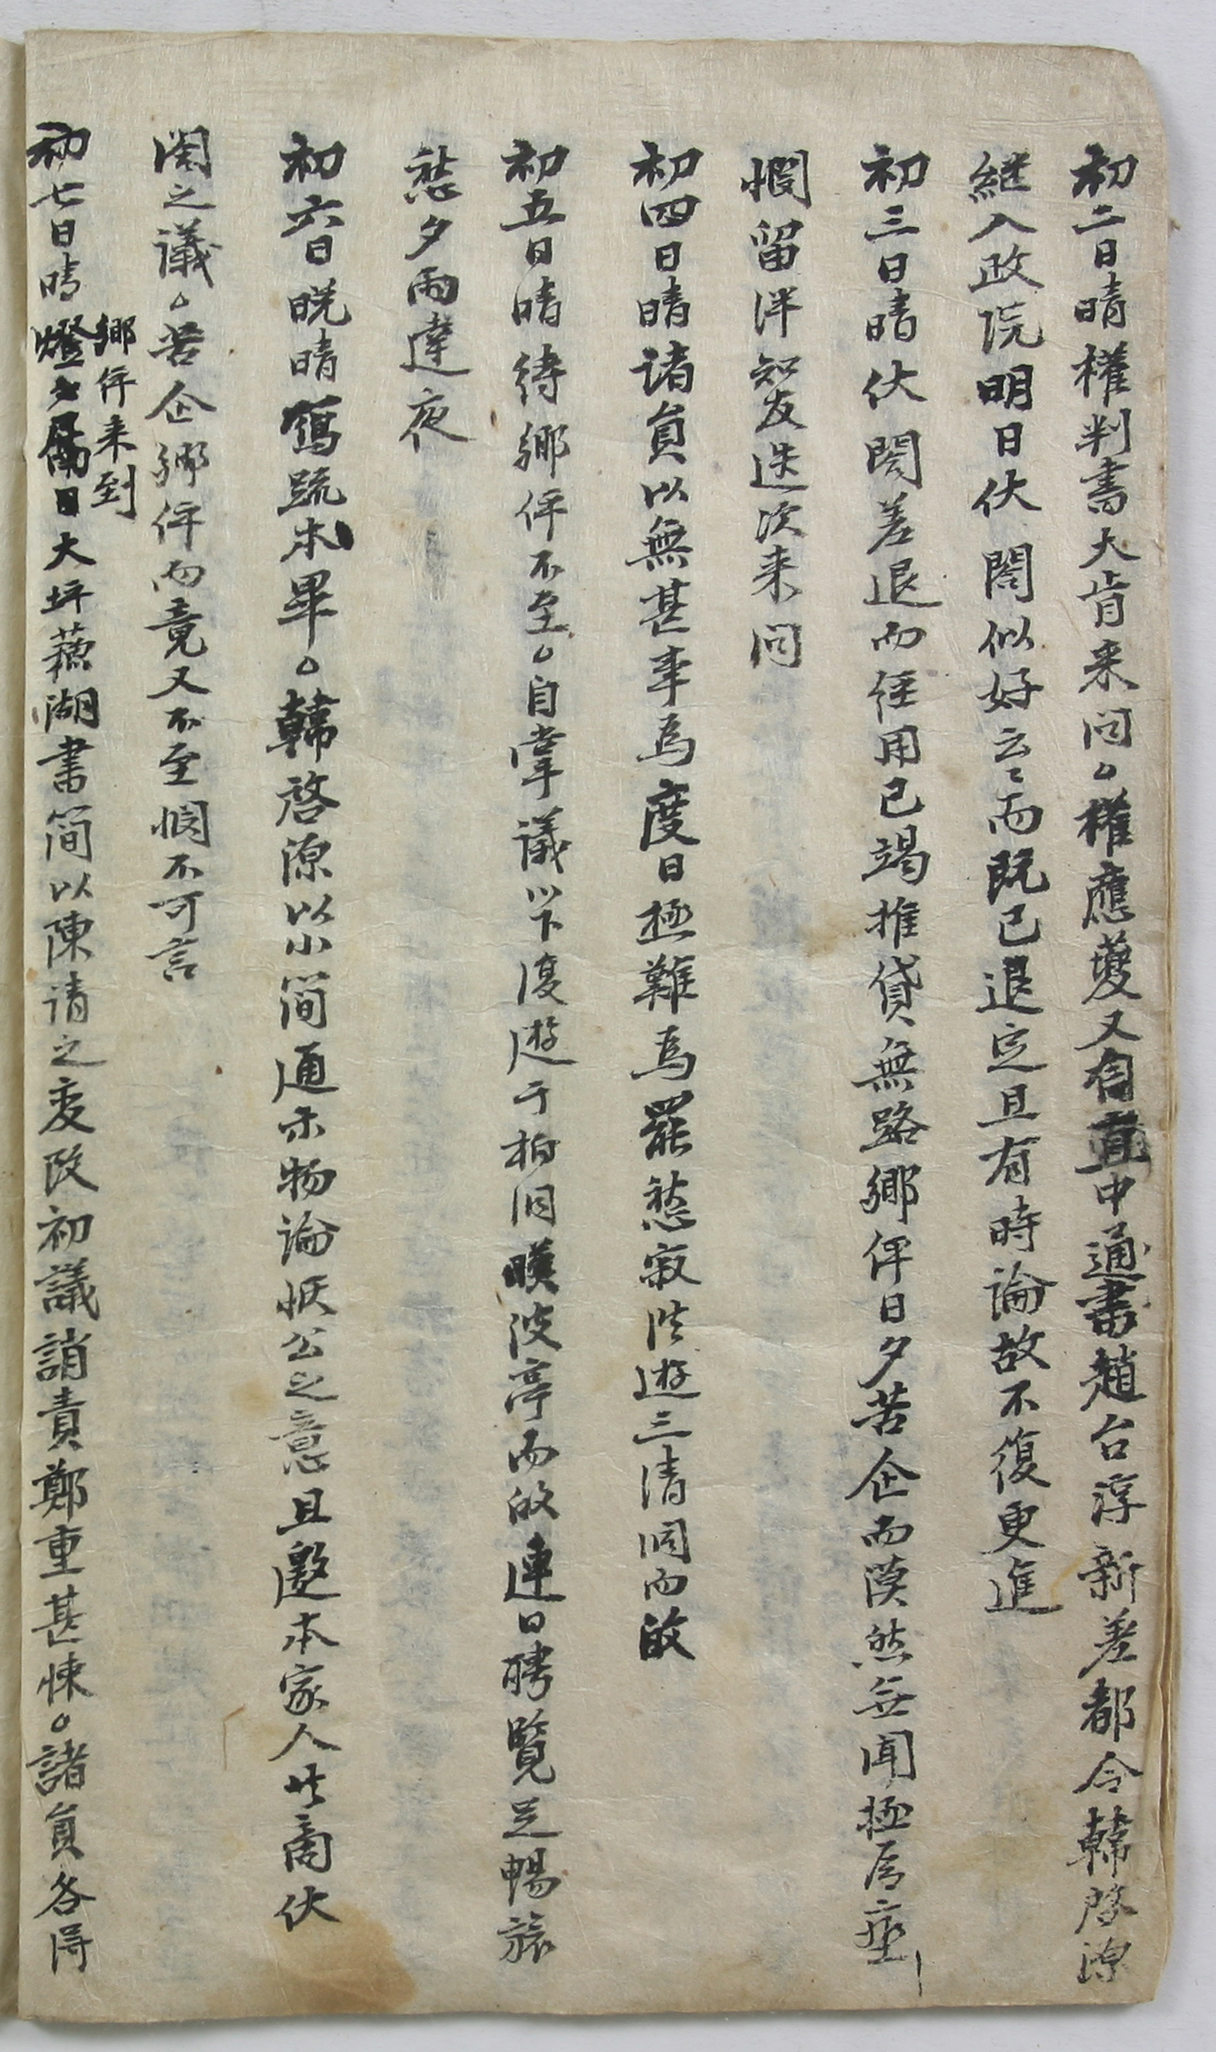 初二日晴權判書大肯来問。權應夔又自直中通書趙台淳新差都令韓啓源
継入政院明日伏閤似好云〻而旣已退定且有時論故不復更進
初三日晴伏閤差退而任用已竭推貸無路鄉伻日夕苦企而漠然無聞極庸菀
憫留泮知友迭次来问
初四日晴诸員以無甚事爲度日極難爲罷愁寂往遊三清洞而啟
初五日晴待鄉伻不至。自掌議以下復遊于柏洞暎波亭而啟連日聘覽足暢旅
愁夕雨達夜
初六日晩晴寫疏本畢。韓啓源以小简通示物論恢公之意且邀本家人共商伏
閤之議。苦企鄉伻而竟又不至惘不可言
初七日晴鄉伻来到燈夕屬日大坪蘓湖書简以陳请之变改初議誚責鄭重甚悚。諸員各得